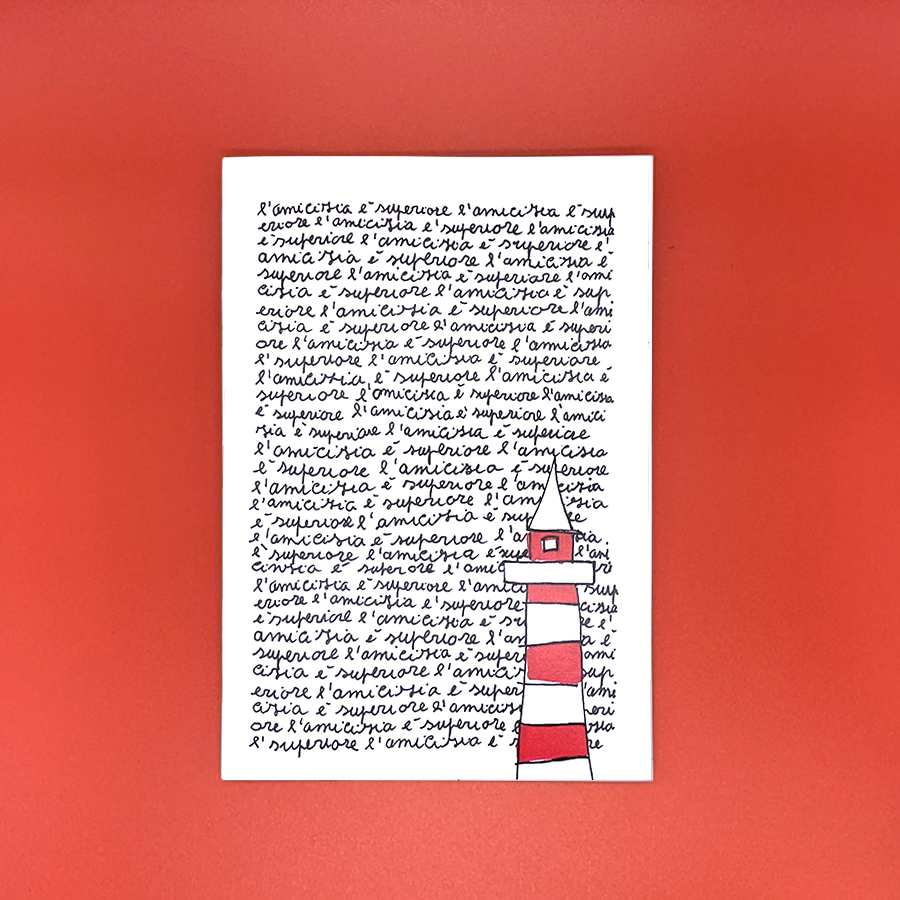 l'amicizia è superiore l'amicizia è sup
eriore l'amicizia è superiore l'amicizia
è superiore l'amicizia è superiore l'
amicizia è superiore l'amicizia è
superiore l'amicizia è superiore l'ami
cizia è superiore l'amicizia è sup
eriore l'amicizia è superiore l'ami
cizia è superiore l'amicizia è superi
ore l'amicizia è superiore l'amicizia
l' superiore l'amicizia è superiore
l'amicizia è superiore l'amicizia è
superiore l'amicizia è superiore l'amicizia
è superiore l'amicizia è superiore l'amici
zia è superiore l'amicizia è superiore
l'amicizia è superiore l'amicizia
è superiore l'amicizia è superiore
l'amicizia è superiore l'am icizia
l'amicizia è superiore l'am icizia
è superiore l'amicizia è su re
l'amicizia è superiore l'a zia.
l' superiore l'amicizia è l'ami
cinzia è superiore l'ami
l'amicizia è superiore l'amici sup
eriore l'amicizia è superiore cizia
è superiore l'amicizia è su re l'
amicizia è superiore l'am a è
superiore l'amicizia è super ami
cizia è superiore l'amici sup
eriore l'amicizia è super 'ami
cizia è superiore l'amicizia eri
ore l'amicizia è superiore izia
l' superiore l'amicizia è s re